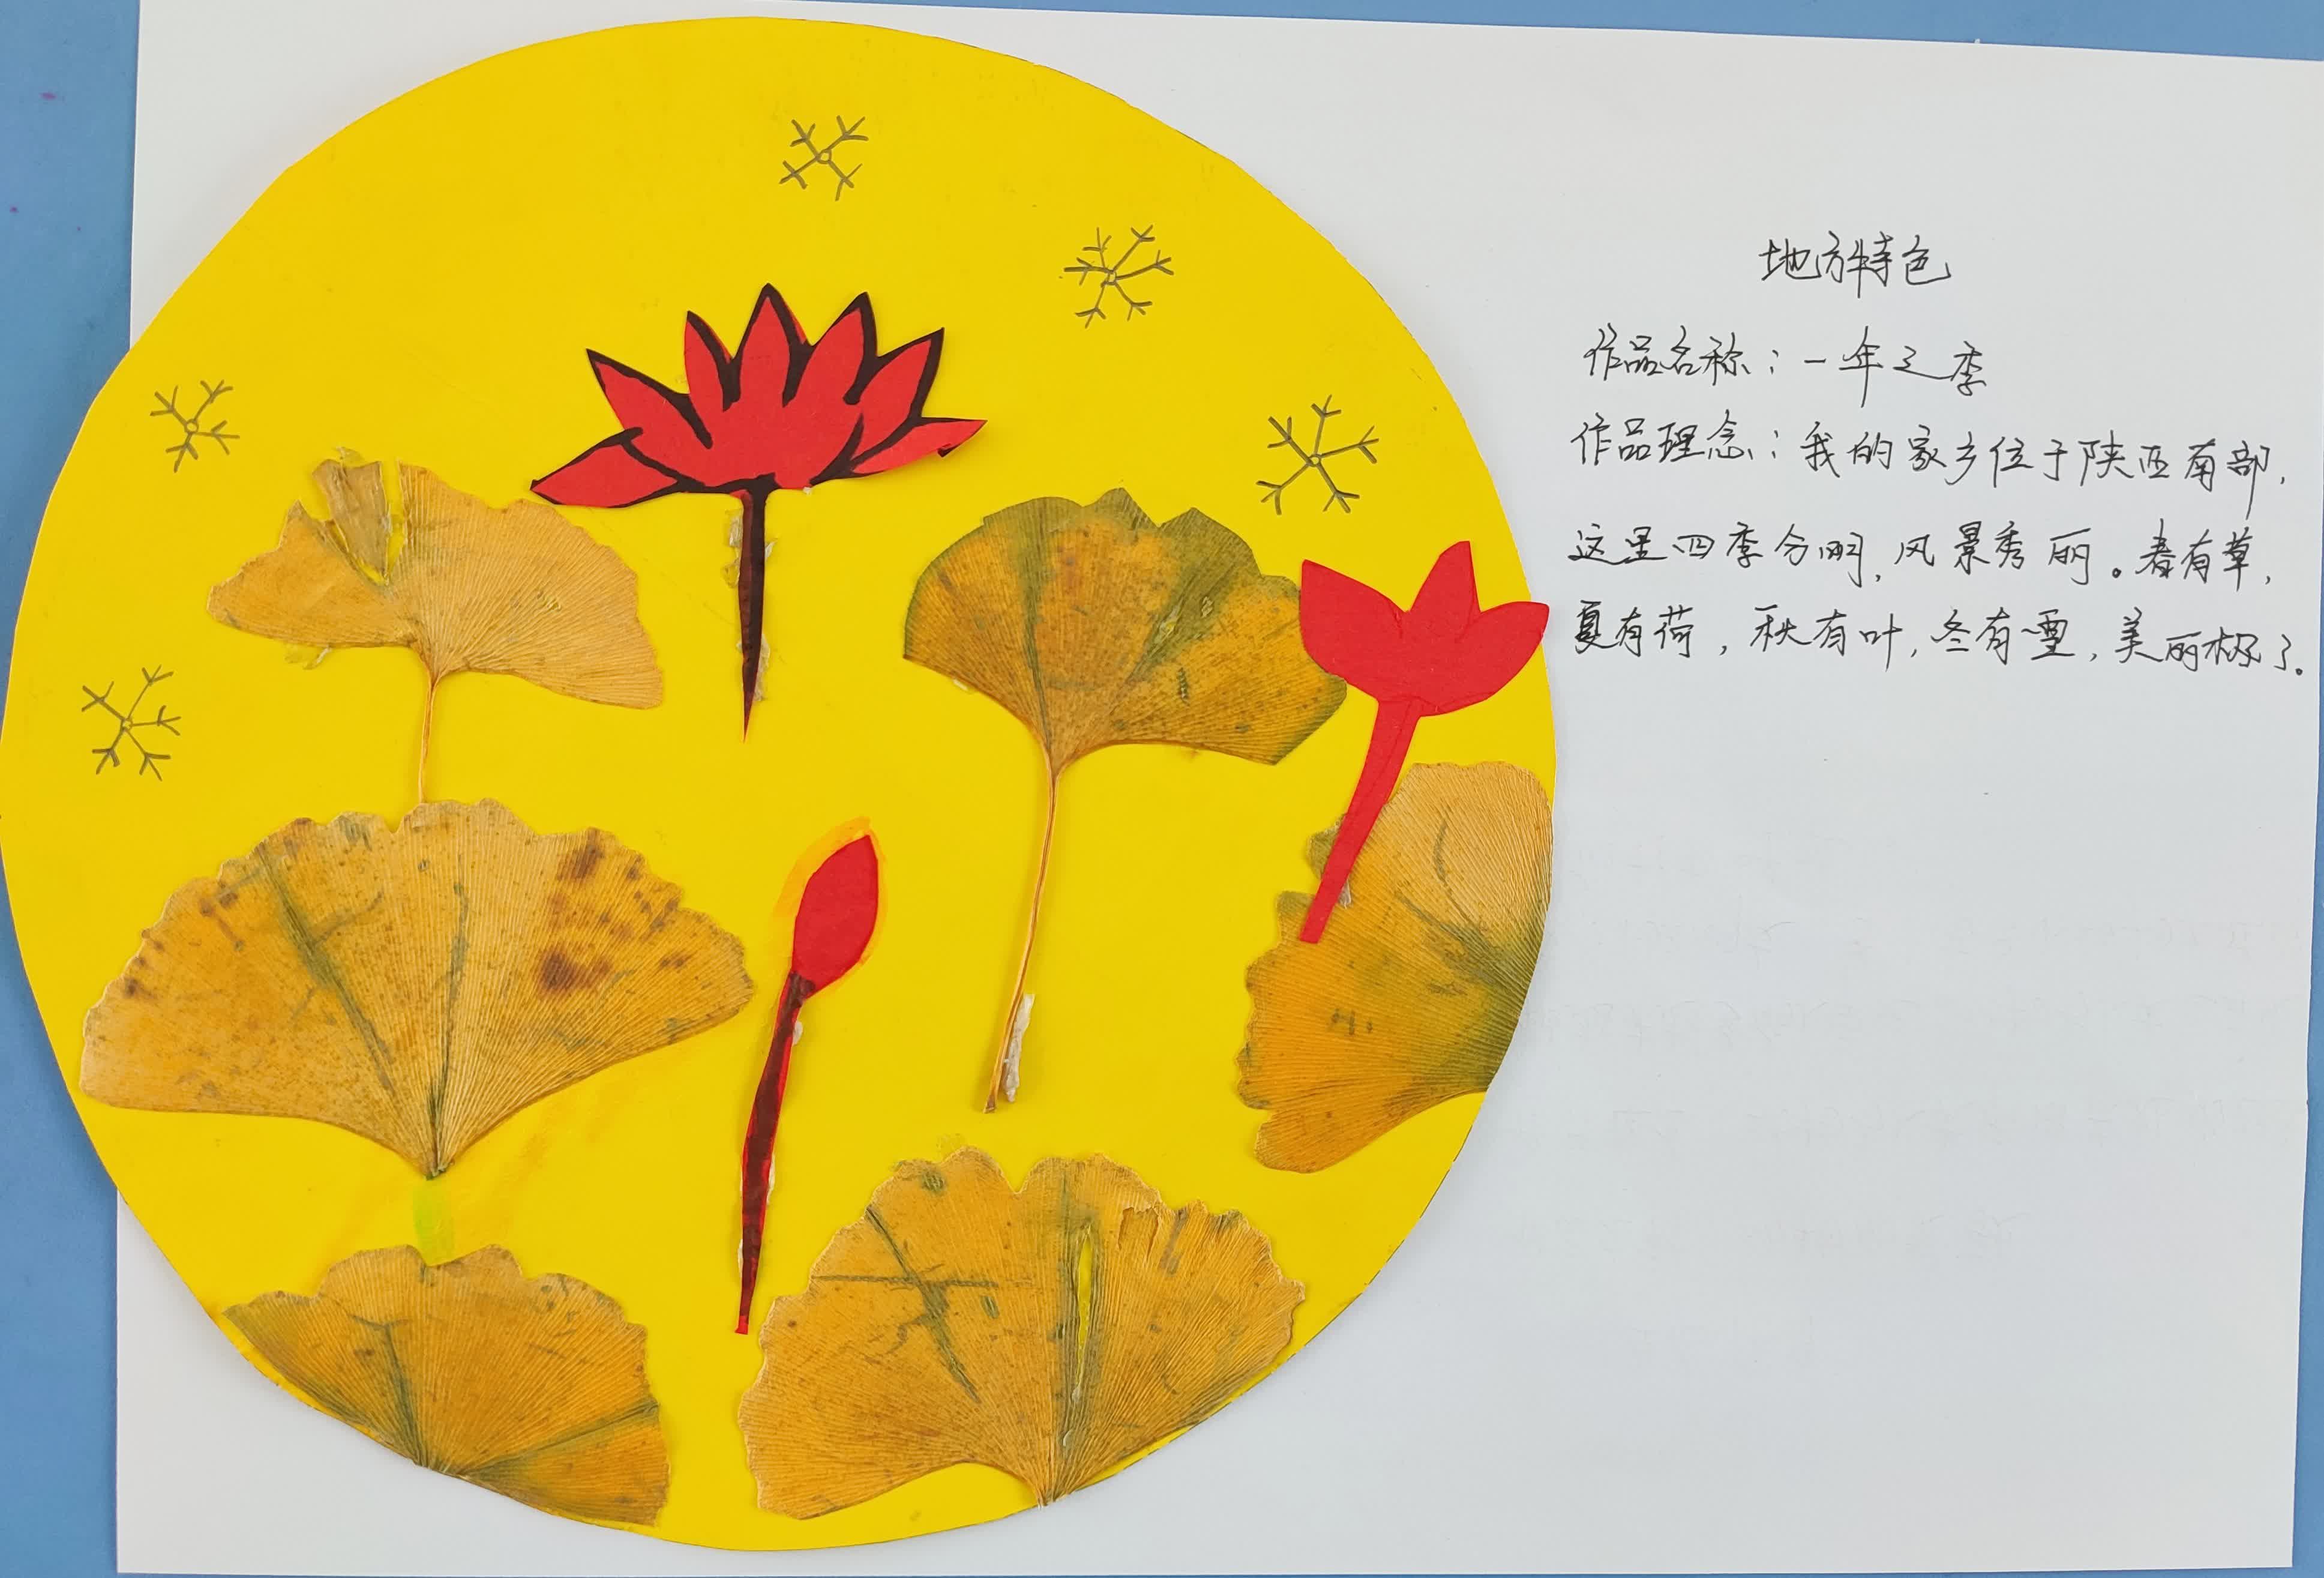 地方特色
作品名称：一年之季
作品理念：我的家乡位于陕西南部，
这里四季分明，风景秀丽。春有草，
夏有荷，秋有叶，冬有雪，美丽极了。